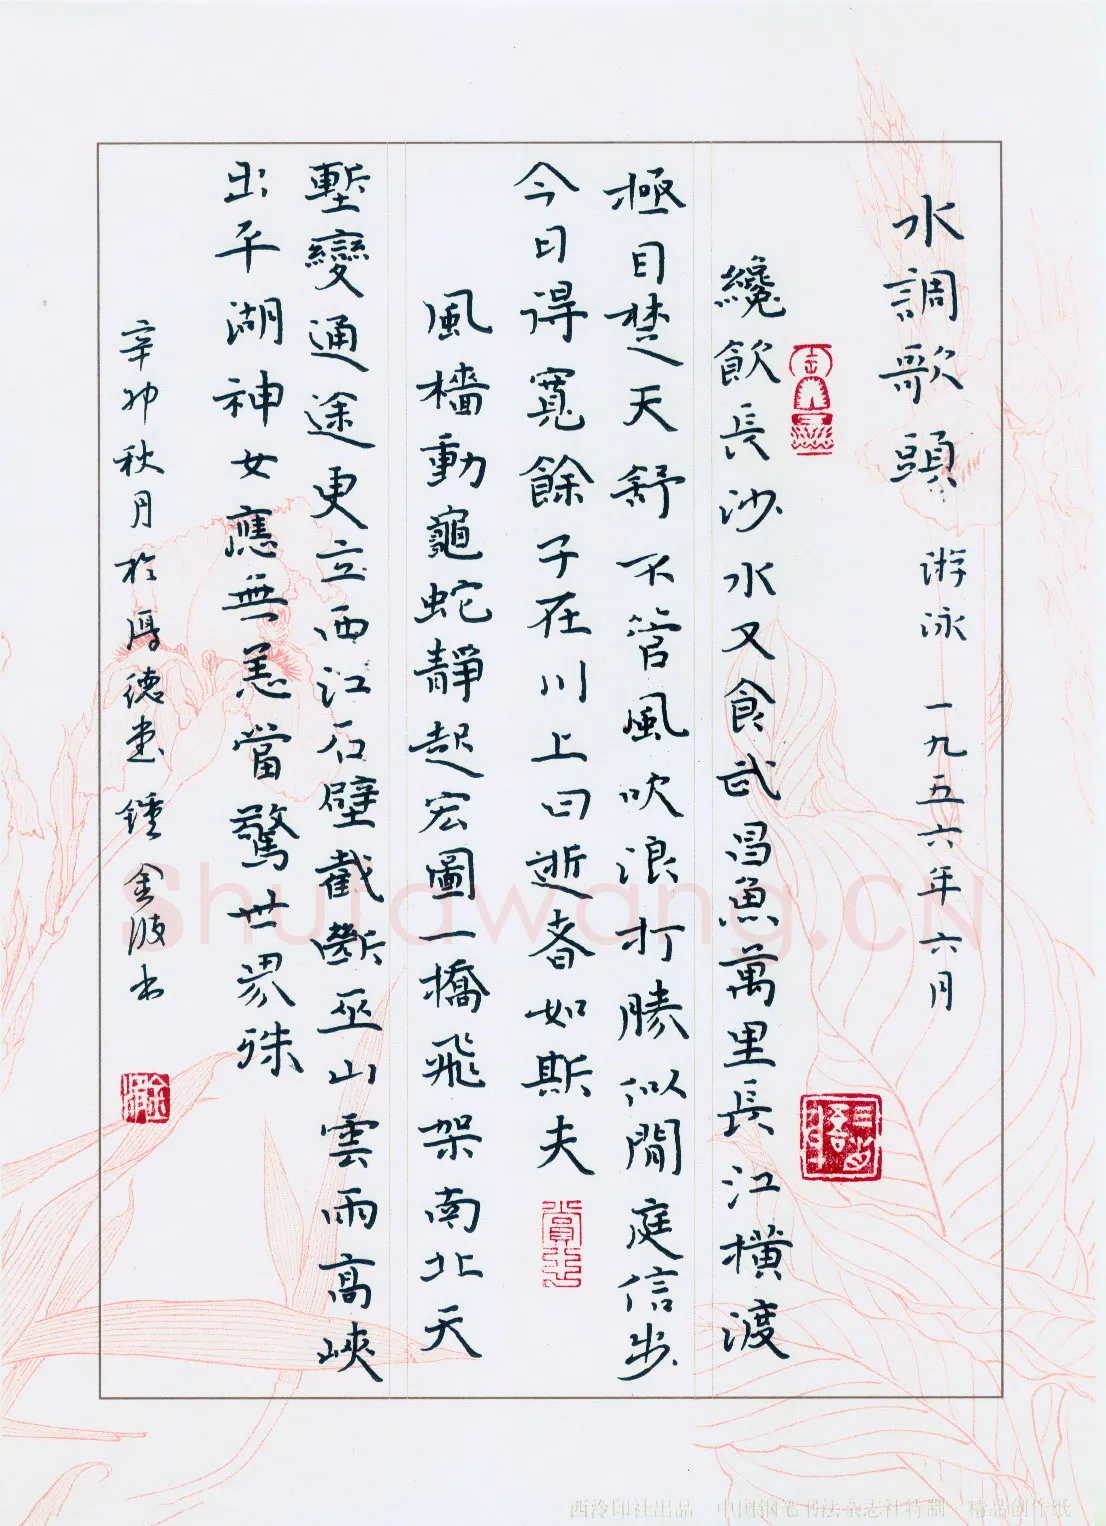 水調歌頭 游泳 一九五六年六月
纔飲長沙水又食武昌魚萬里長江橫渡
極目楚天舒不管風吹浪打勝似閒庭信步
今日得寬餘子在川上曰逝者如斯夫
風檣動龜蛇靜起宏圖一橋飛架南北天
塹變通途更立西江石壁截斷巫山雲雨高峽
出平湖神女應無恙當驚世界殊
辛卯秋月於厚德堂鍾金波書
Shufawang.CN
西泠印社出品 中国钢笔书法杂志社特制·精品创作纸